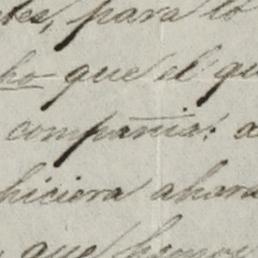 tes, para lo
ho que el qu
compañia: a
hiciera ahora
que hemos